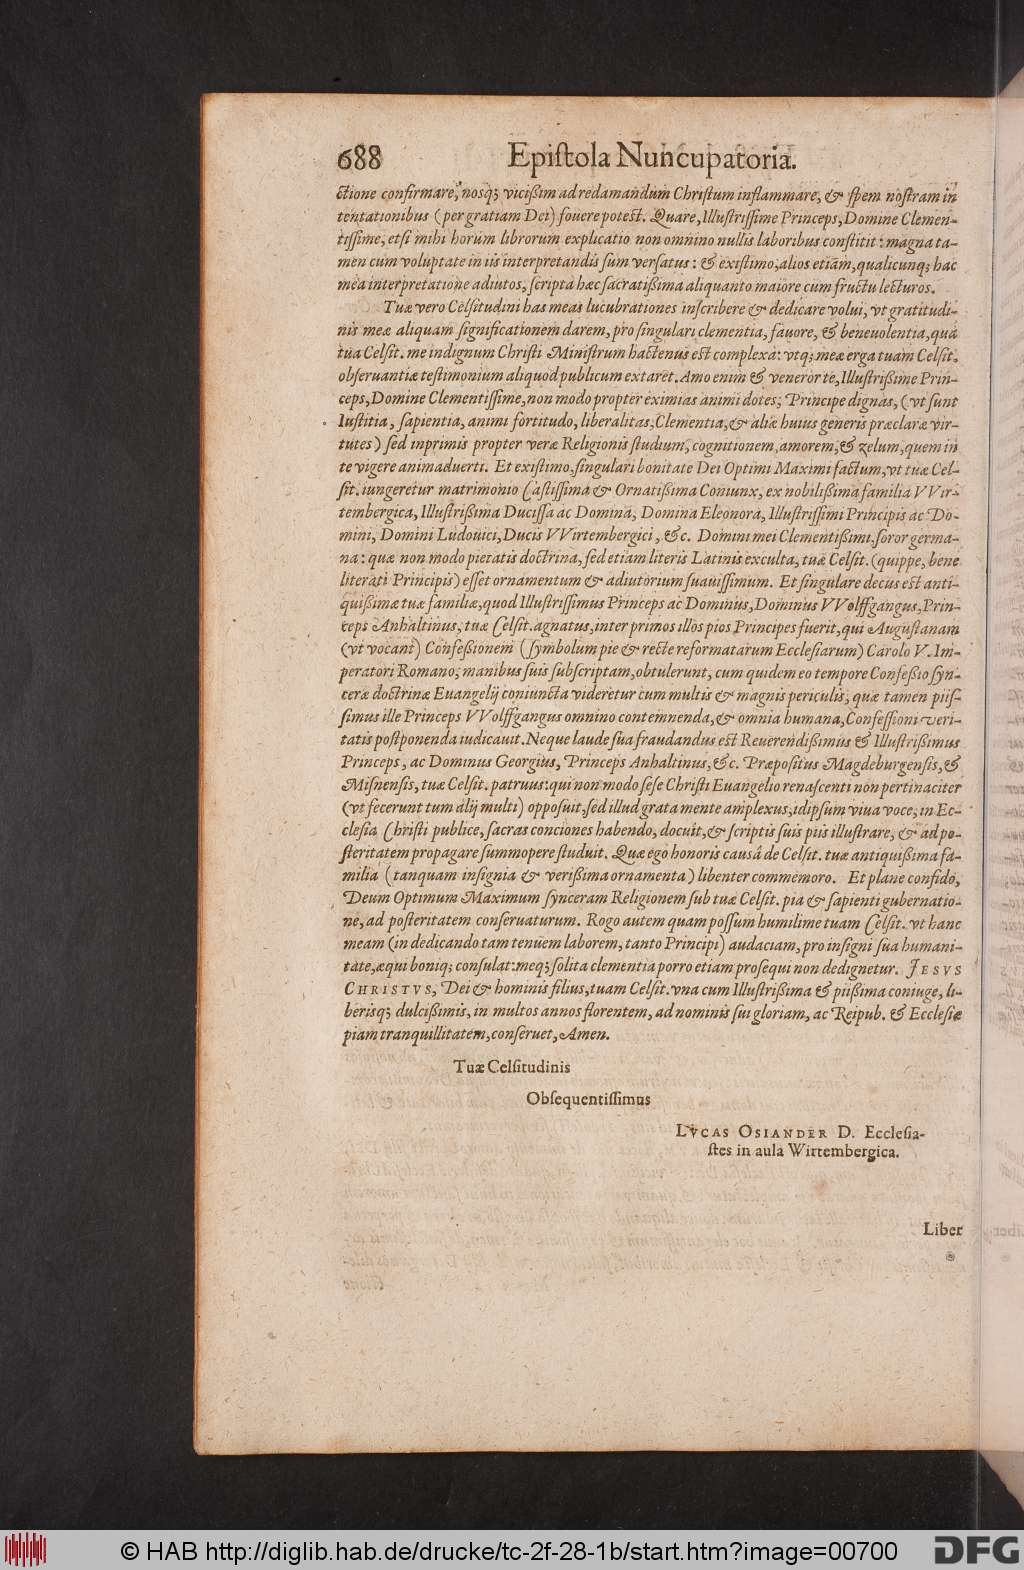 688 Epiſtola Nuncupatoria.
ctione confirmare, nosq́; viciſsim ad redamandum Chriſtum inflammare, & ſpem noſtram in
tentationibus (per gratiam Dei) fouere poteſt. Quare, Illuſtriſſime Princeps, Domine Clemen-
tiſſime, etſi mihi horum librorum explicatio non omnino nullis laboribus conſtitit: magna ta-
men cum voluptate in iis interpretandis ſum verſatus: & exiſtimo, alios etiam, qualicunq; hac
mea interpretatione adiutos, ſcripta hæc ſacratiſsima aliquanto maiore cum fructu lecturos.
Tuæ vero Celſitudini has meas lucubrationes inſcribere & dedicare volui, vt gratitudi-
nis meæ aliquam ſignificationem darem, pro ſingulari clementia, fauore, & beneuolentia, qua
tua Celſit. me indignum Chriſti Miniſtrum hactenus eſt complexa: vtq; meæ erga tuam Celſit.
obſeruantiæ teſtimonium aliquod publicum extaret. Amo enim & veneror te, Illuſtriſsime Prin-
ceps, Domine Clementiſſime, non modo propter eximias animi dotes, Principe dignas, (vt ſunt
Iuſtitia, ſapientia, animi fortitudo, liberalitas, Clementia, & aliæ huius generis præclaræ vir-
tutes) ſed inprimis propter veræ Religionis ſtudium, cognitionem, amorem, & zelum, quem in
te vigere animaduerti. Et exiſtimo, ſingulari bonitate Dei Optimi Maximi factum, vt tuæ Cel-
ſit. iungeretur matrimonio Caſtiſſima & Ornatiſsima Coniunx, ex nobiliſsima familia VVir-
tembergica, Illuſtriſsima Duciſſa ac Domina, Domina Eleonora, Illuſtriſſimi Principis ac Do-
mini, Domini Ludouici, Ducis VVirtembergici, &c. Domini mei Clementiſsimi, ſoror germa-
na: quæ non modo pietatis doctrina, ſed etiam literis Latinis exculta, tuæ Celſit. (quippe, bene
literati Principis) eſſet ornamentum & adiutorium ſuauiſſimum. Et ſingulare decus eſt anti-
quiſsimæ tuæ familiæ, quod Illuſtriſſimus Princeps ac Dominus, Dominus VVolffgangus, Prin-
ceps Anhaltinus, tuæ Celſit. agnatus, inter primos illos pios Principes fuerit, qui Auguſtanam
(vt vocant) Confeſsionem (ſymbolum pie & recte reformatarum Eccleſiarum) Carolo V. Im-
peratori Romano, manibus ſuis ſubſcriptam, obtulerunt, cum quidem eo tempore Confeſsio ſyn-
ceræ doctrinæ Euangelij coniuncta videretur cum multis & magnis periculis, quæ tamen piiſ-
ſimus ille Princeps VVolffgangus omnino contemnenda, & omnia humana, Confeſſioni veri-
tatis poſtponenda iudicauit. Neque laude ſua fraudandus eſt Reuerendiſsimus & Illuſtriſsimus
Princeps, ac Dominus Georgius, Princeps Anhaltinus, &c. Præpoſitus Magdeburgenſis, &
Miſnenſis, tuæ Celſit. patruus: qui non modo ſeſe Chriſti Euangelio renaſcenti non pertinaciter
(vt fecerunt tum alij multi) oppoſuit, ſed illud grata mente amplexus, idipſum viua voce, in Ec-
cleſia Chriſti publice, ſacras conciones habendo, docuit, & ſcriptis ſuis piis illuſtrare, & ad po-
ſteritatem propagare ſummopere ſtuduit. Quæ ego honoris causâ de Celſit. tuæ antiquiſsima fa-
milia (tanquam inſignia & veriſsima ornamenta) libenter commemoro. Et plane confido,
Deum Optimum Maximum ſynceram Religionem ſub tuæ Celſit. pia & ſapienti gubernatio-
ne, ad poſteritatem conſeruaturum. Rogo autem quam poſſum humilime tuam Celſit. vt hanc
meam (in dedicando tam tenuem laborem, tanto Principi) audaciam, pro inſigni ſua humani-
tate, æqui boniq; conſulat: meq; ſolita clementia porro etiam proſequi non dedignetur. JESVS
CHRISTVS, Dei & hominis filius, tuam Celſit. vna cum Illuſtriſsima & piiſsima coniuge, li-
berisq; dulciſsimis, in multos annos florentem, ad nominis ſui gloriam, ac Reipub. & Eccleſiæ
piam tranquillitatem, conſeruet, Amen.
Tuæ Celſitudinis
Obſequentiſſimus
LVCAS OSIANDER D. Eccleſia-
ſtes in aula Wirtembergica.
Liber
© HAB http://diglib.hab.de/drucke/tc-2f-28-1b/start.htm?image=00700
DFG